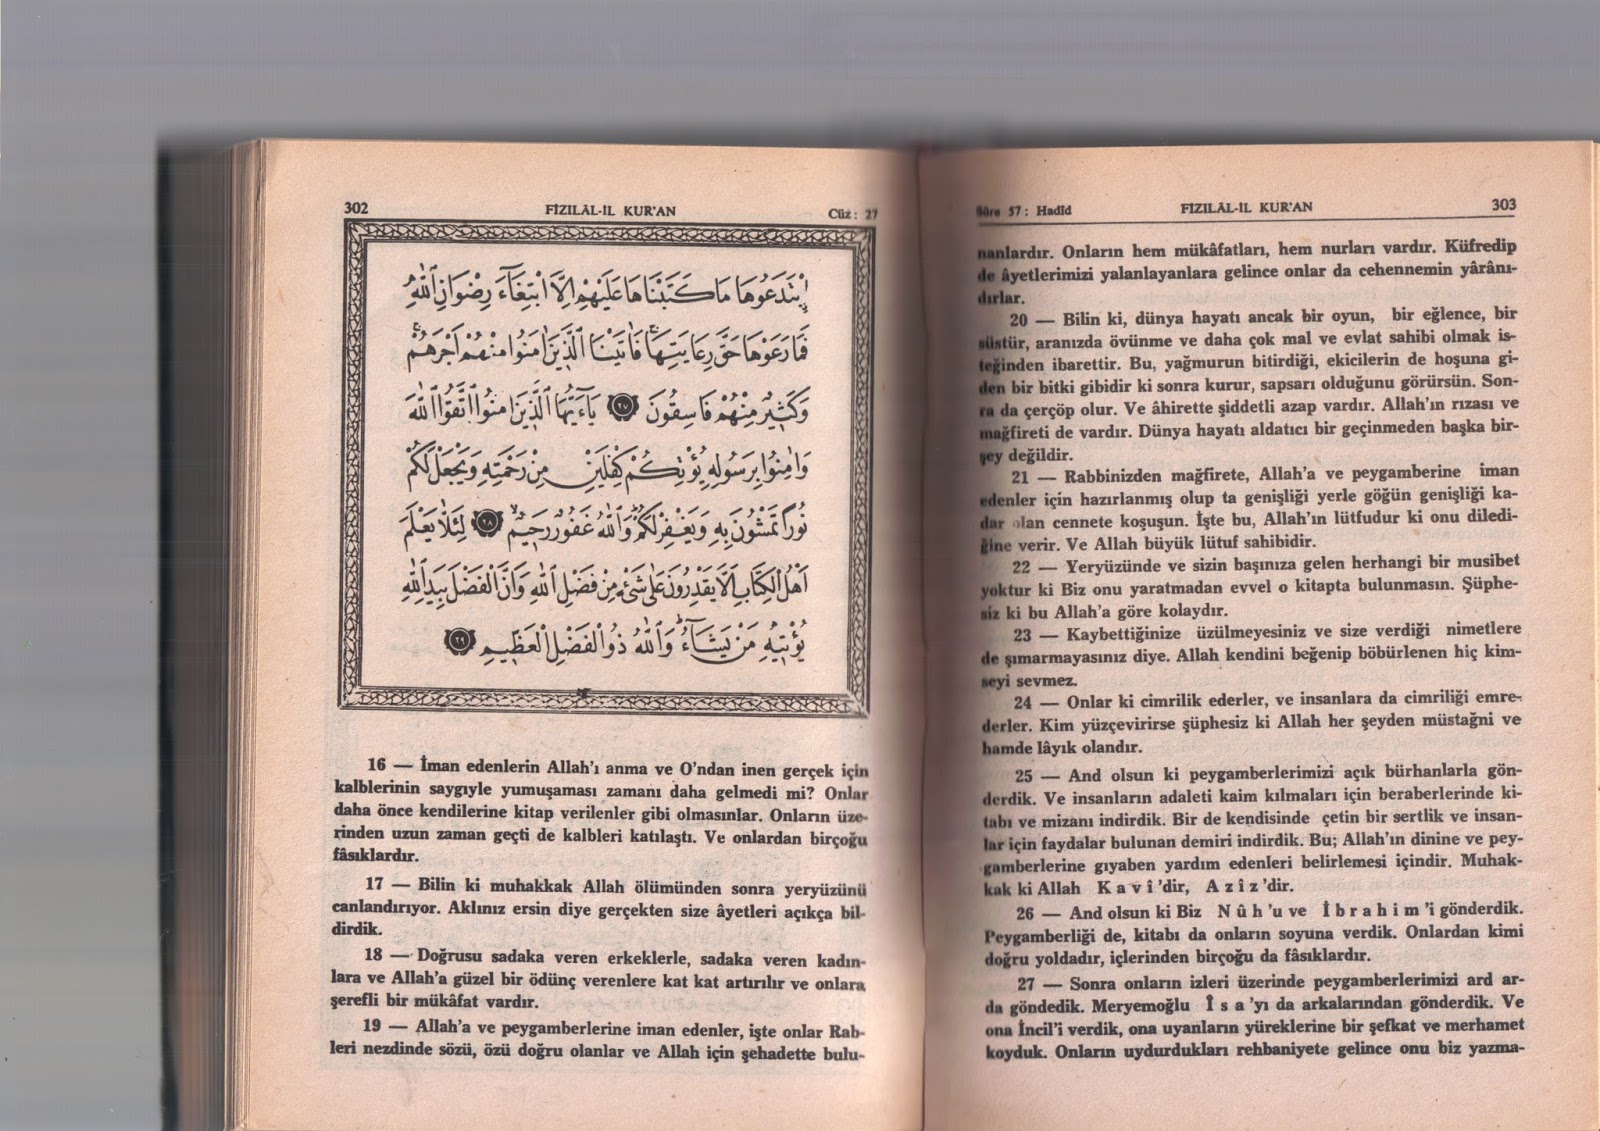 302 FİZILÂL-İL KUR'AN Cüz: 27
ابْتَدَعُوهَا مَا كَتَبْنَاهَا عَلَيْهِمْ اِلَّا ابْتِغَٓاءَ رِضْوَانِ اللّٰهِ
فَمَا رَعَوْهَا حَقَّ رِعَايَتِهَاۚ فَاٰتَيْنَا الَّذٖينَ اٰمَنُوا مِنْهُمْ اَجْرَهُمْۚ
وَكَثٖيرٌ مِنْهُمْ فَاسِقُونَ ﴿٢٧﴾ يَٓا اَيُّهَا الَّذٖينَ اٰمَنُوا اتَّقُوا اللّٰهَ
وَاٰمِنُوا بِرَسُولِهٖ يُؤْتِكُمْ كِفْلَيْنِ مِنْ رَحْمَتِهٖ وَيَجْعَلْ لَكُمْ
نُورًا تَمْشُونَ بِهٖ وَيَغْفِرْ لَكُمْۜ وَاللّٰهُ غَفُورٌ رَحٖيمٌۙ ﴿٢٨﴾ لِئَلَّا يَعْلَمَ
اَهْلُ الْكِتَابِ اَلَّا يَقْدِرُونَ عَلٰى شَيْءٍ مِنْ فَضْلِ اللّٰهِ وَاَنَّ الْفَضْلَ بِيَدِ اللّٰهِ
يُؤْتٖيهِ مَنْ يَشَٓاءُۜ وَاللّٰهُ ذُو الْفَضْلِ الْعَظٖيمِ ﴿٢٩﴾
16 — İman edenlerin Allah'ı anma ve O'ndan inen gerçek için
kalblerinin saygıyle yumuşaması zamanı daha gelmedi mi? Onlar
daha önce kendilerine kitap verilenler gibi olmasınlar. Onların üze-
rinden uzun zaman geçti de kalbleri katılaştı. Ve onlardan birçoğu
fâsıklardır.
17 — Bilin ki muhakkak Allah ölümünden sonra yeryüzünü
canlandırıyor. Aklınız ersin diye gerçekten size âyetleri açıkça bil-
dirdik.
18 — Doğrusu sadaka veren erkeklerle, sadaka veren kadın-
lara ve Allah'a güzel bir ödünç verenlere kat kat artırılır ve onlara
şerefli bir mükâfat vardır.
19 — Allah'a ve peygamberlerine iman edenler, işte onlar Rab-
leri nezdinde sözü, özü doğru olanlar ve Allah için şehadette bulu-
Sûre 57: Hadîd FİZILÂL-İL KUR'AN 303
nanlardır. Onların hem mükâfatları, hem nurları vardır. Küfredip
de âyetlerimizi yalanlayanlara gelince onlar da cehennemin yârânı-
dırlar.
20 — Bilin ki, dünya hayatı ancak bir oyun, bir eğlence, bir
süstür, aranızda övünme ve daha çok mal ve evlat sahibi olmak is-
teğinden ibarettir. Bu, yağmurun bitirdiği, ekicilerin de hoşuna gi-
den bir bitki gibidir ki sonra kurur, sapsarı olduğunu görürsün. Son-
ra da çerçöp olur. Ve âhirette şiddetli azap vardır. Allah'ın rızası ve
mağfireti de vardır. Dünya hayatı aldatıcı bir geçinmeden başka bir-
şey değildir.
21 — Rabbinizden mağfirete, Allah'a ve peygamberine iman
edenler için hazırlanmış olup ta genişliği yerle göğün genişliği ka-
dar olan cennete koşuşun. İşte bu, Allah'ın lütfudur ki onu diledi-
ğine verir. Ve Allah büyük lütuf sahibidir.
22 — Yeryüzünde ve sizin başınıza gelen herhangi bir musibet
yoktur ki Biz onu yaratmadan evvel o kitapta bulunmasın. Şüphe-
siz ki bu Allah'a göre kolaydır.
23 — Kaybettiğinize üzülmeyesiniz ve size verdiği nimetlere
de şımarmayasınız diye. Allah kendini beğenip böbürlenen hiç kim-
seyi sevmez.
24 — Onlar ki cimrilik ederler, ve insanlara da cimriliği emre-
derler. Kim yüzçevirirse şüphesiz ki Allah her şeyden müstağni ve
hamde lâyık olandır.
25 — And olsun ki peygamberlerimizi açık bürhanlarla gön-
derdik. Ve insanların adaleti kaim kılmaları için beraberlerinde ki-
tabı ve mizanı indirdik. Bir de kendisinde çetin bir sertlik ve insan-
lar için faydalar bulunan demiri indirdik. Bu; Allah'ın dinine ve pey-
gamberlerine gıyaben yardım edenleri belirlemesi içindir. Muhak-
kak ki Allah K a v î 'dir, A z î z 'dir.
26 — And olsun ki Biz N û h 'u ve İ b r a h i m 'i gönderdik.
Peygamberliği de, kitabı da onların soyuna verdik. Onlardan kimi
doğru yoldadır, içlerinden birçoğu da fâsıklardır.
27 — Sonra onların izleri üzerinde peygamberlerimizi ard ar-
da göndedik. Meryemoğlu Î s a 'yı da arkalarından gönderdik. Ve
ona İncil'i verdik, ona uyanların yüreklerine bir şefkat ve merhamet
koyduk. Onların uydurdukları rehbaniyete gelince onu biz yazma-